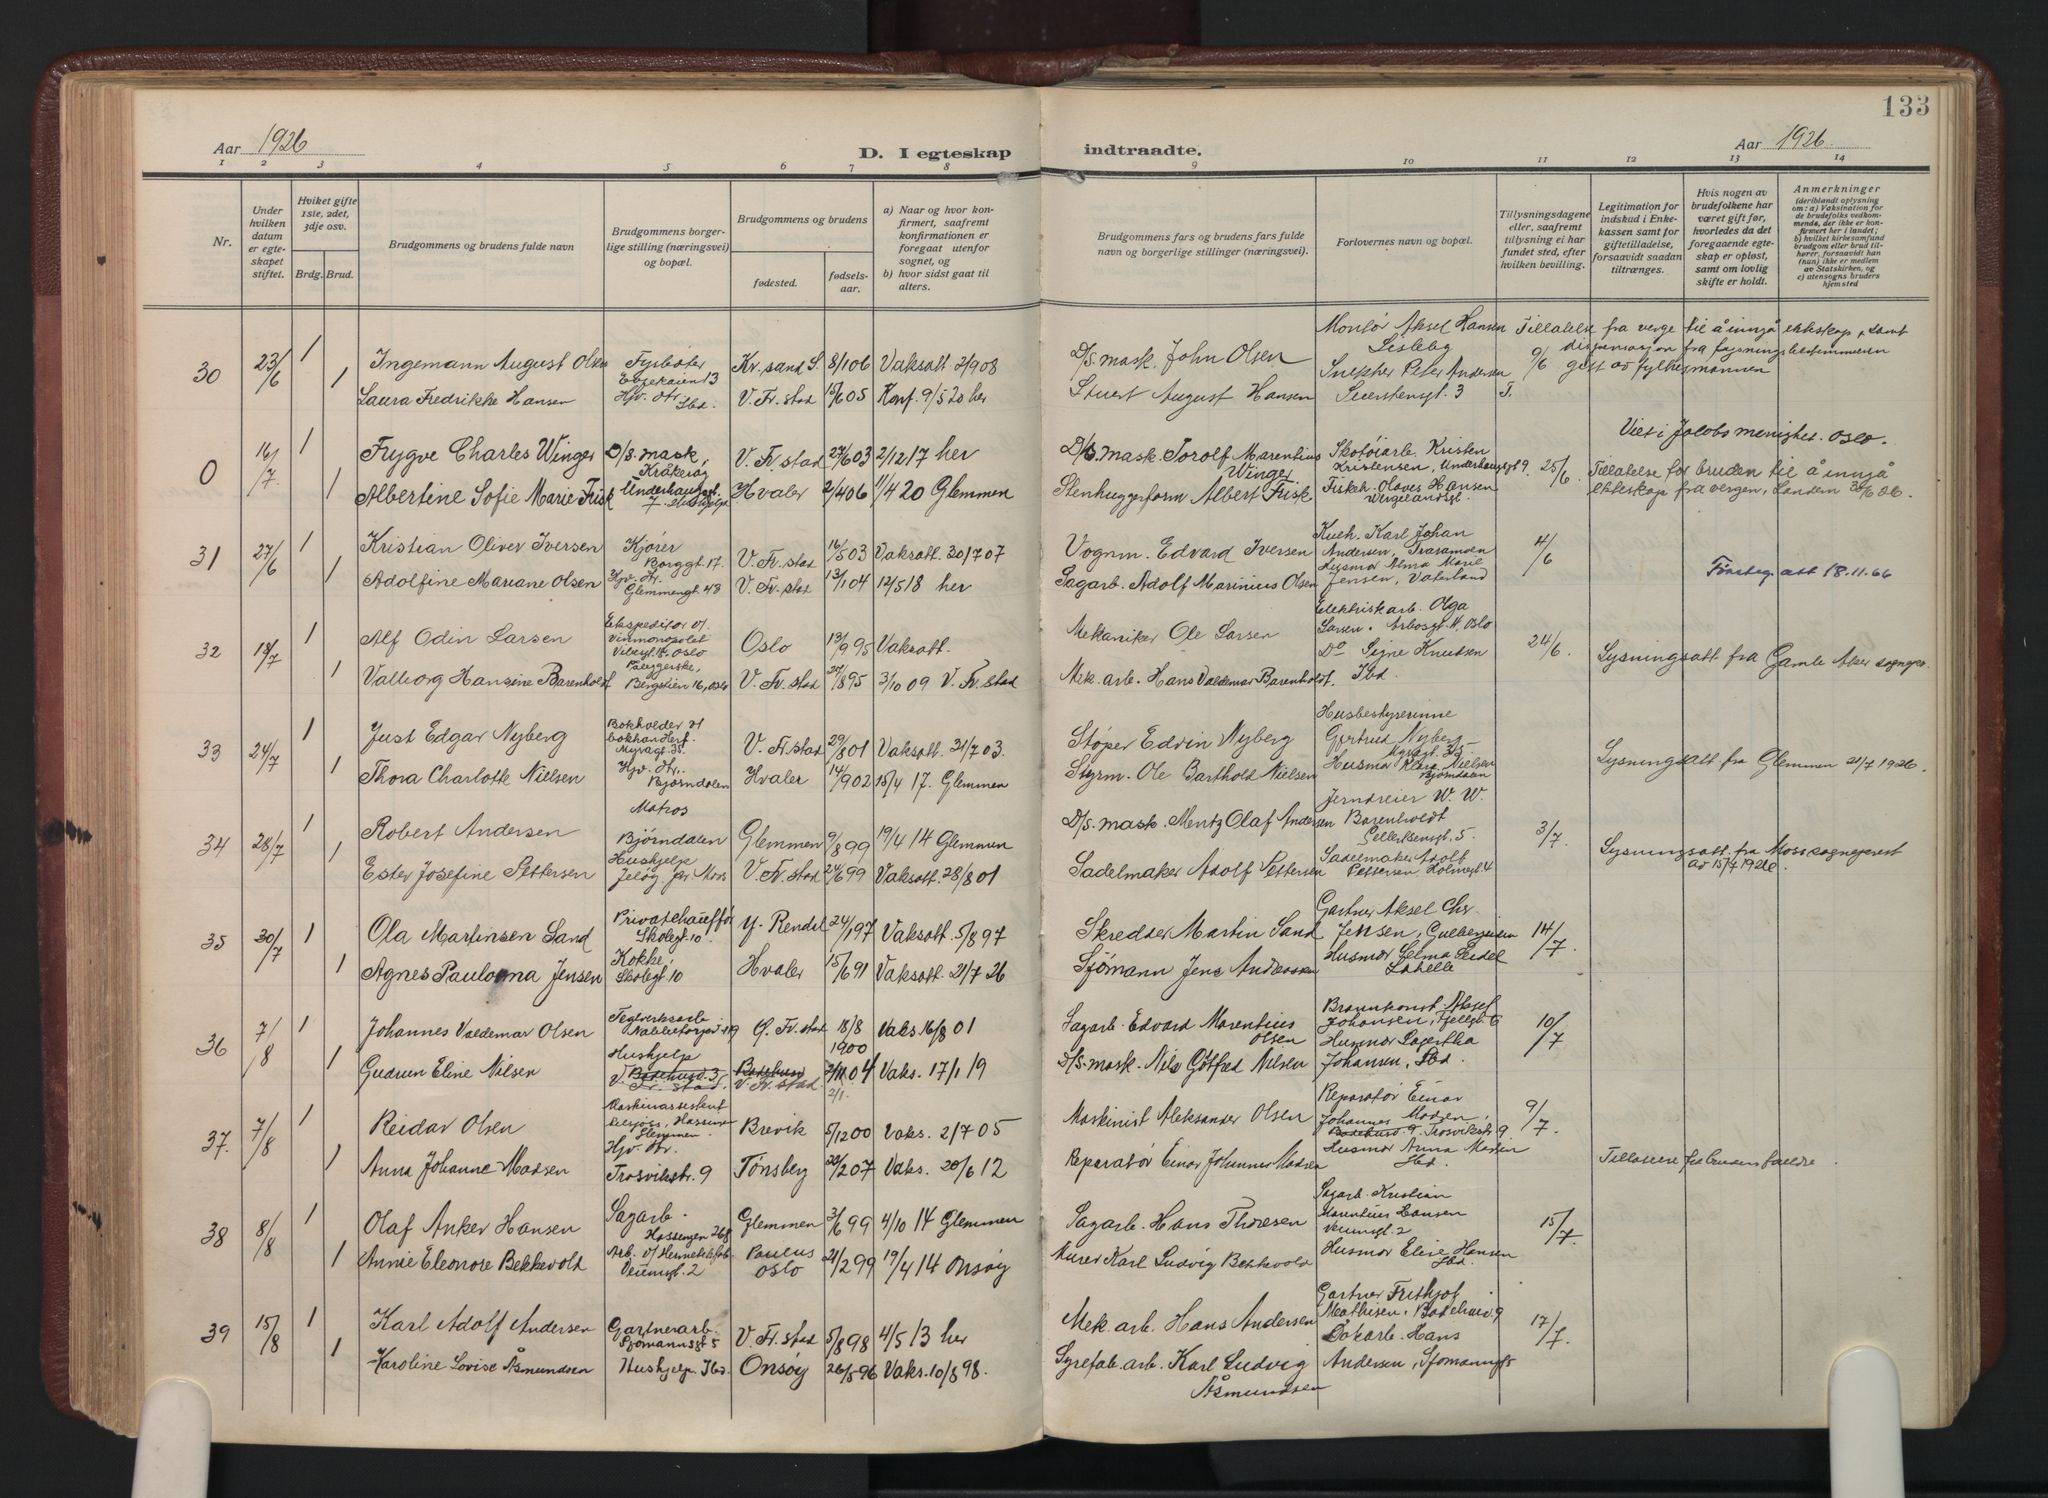 133
Aar 1926
D. I egteskap
indtraadte.
Aar 1926.
1 2 3 4 5 6 7 8 9 10 11 12 13 14
Nr.
Under hvilken datum er egteskapet stiftet.
Hviket gifte 1ste, 2det, 3dje osv.
Brdg. Brud.
Brudgommens og brudens fulde navn
Brudgommens borgerlige stilling (næringsvei) og bopæl.
Brudgommens og brudens
fødested.
fødselsaar.
a) Naar og hvor konfirmert, saafremt konfirmationen er foregaat utenfor sognet, og
b) hvor sidst gaat til alters.
Brudgommens fars og brudens fars fulde navn og borgerlige stillinger (næringsvei).
Forlovernes navn og bopæl.
Tillysningsdagene eller, saafremt tilysning ei har fundet sted, efter hvilken bevilling.
Legitimation for indskud i Enkekassen samt for giftetilladelse, forsaavidt saadan tiltrænges.
Hvis nogen av brudefolkene har været gift før, hvorledes da det foregaaende egteskap er opløst, samt om lovlig skifte er holdt.
Anmerkninger
(deriblandt oplysning om: a) Vaksination for de brudefolks vedkommende, der ikke er konfirmert her i landet; b) hvilket kirkesamfund brudgom eller brud tilhører, forsaavidt han (hun) ikke er medlem av Statskirken, og c) utensogns bruders hjemsted
30 23/6 1 Ingemann August Olsen Fyrbøter Kr.sand S. 8/106 Vaksatt 2/908
D/s. mask. John Olsen Montør Aksel Hansen Lisleby 9/6 Tillatelse fra verge til å inngå ekteskap, samt
dispensasjon fra lysningsbestemmelsen
gitt av fylkesmannen
1 Laura Fredrikke Hansen Hjv. dtr. Ibd. V. Fr.stad 15/605 Konf. 9/5 20 her
Stuert August Hansen Snekker Peter Andersen 3
0 16/7 1 Trygve Charles Winger D/S. mask, Kråkerøy V. Fr. stad 27/603 2/12 17 her
D/S mask. Torolf Marentius Winger Skotøiarb. Kristen Kristensen, 25/6
Viet i Jakobs menighet. Oslo.
1 Albertine Sofie Marie Frisk 7 Hvaler 2/406 11/4 20 Glemmen
Stenhuggerform Albert Frisk Fiskeh. Olaves Hansen Vergelandsgt.
Tillatelse for bruden til å inngå
ekteskap fra vergen, 26.
31 27/6 1 Kristian Oliver Iversen Kjører Borggt. 17. V. Fr. stad 16/503 Vaksatt. 30/7 07
Vognm. Edvard Iversen Karl Johan Andersen, 4/6
1 Adolfine Mariane Olsen Hjv. dtr. Glemmengt. 43 V. Fr. stad 13/104 12/5 18 her
Sagarb. Adolf Marinius Olsen Husmor Alma Marie Jensen, Vaterland
att 18.11.66
32 18/7 1 Alf Odin Larsen Ekspeditør v/ Vinmonopolet Oslo Oslo 13/9 95 Vaksatt.
Mekaniker Ole Larsen Elektriskarb. Olga Larsen. Oslo 24/6.
Lysningsatt fra Gamle Aker sognepr.
1 Valborg Hansine Barenholdt Bergstien 16, Oslo V. Fr. stad 27/895 3/10 09 V. Fr. stad
Mek. arb. Hans Valdemar Barenholdt. Do Signe Knudsen Ibd.
33 24/7 1 Just Edgar Nyberg Bokholder v/ bokhandlerf. Myragt. 35. V. Fr. stad 29/801 Vaksatt. 31/7 03.
Støper Edvin Nyberg Husbestyrerinne Gertrud Nyberg Myragt. 35
1 Thora Charlotte Nielsen Hjv. dtr. Bjørndalen Hvaler 14/902 15/4 17. Glemmen
Styrm. Ole Barthold Nielsen Husmor Klara Nielsen Bjørndalen
Lysningsatt fra Glemmen 21/7 1926.
34 28/7 1 Robert Andersen Matros Bjørndalen Glemmen 9/899 19/4 14 Glemmen
D/S. mask. Mentz Olaf Andersen Jerndreier W. W. Barenholdt 5. 3/7
1 Ester Josefine Pettersen Hushjelp Jeløy pr. Moss V. Fr. stad 24/699 Vaksatt. 28/8 01
Sadelmaker Adolf Pettersen Sadelmaker Adolf Pettersen Holmegt. 4
Lysningsatt. fra Moss sogneprest
av 15/7 1926.
35 30/7 1 Ola Martinsen Sand Privatchauffør Skolegt. 10. Y. Rendal 24/197 Vaksatt. 5/8 97
Skredder Martin Sand Gartner Aksel Chr. Jensen, 14/7.
1 Agnes Paulovna Jensen Kokke, Skolegt. 10 Hvaler 15/691 Vaksatt. 21/7 26
Sjømann Jens Andreassen Husmor Selma Seidel Labelle
36 7/8 1 Johannes Valdemar Olsen Teglverksarb. Ø. Fr. stad 18/8 1900 Vaks. 16/8 01
Sagarb. Edvard Marentius Olsen Johansen, Fjellgt. 6 10/7
1 Gudrun Eline Nilsen Hushjelp V. Fr. stad. V. Fr. stad 04 Vaks. 17/1 19
2/1.
D/S. mask. Nils Gotfred Nilsen Husmor Lagertha Johansen, Ibd.
37. 7/8 1 Reidar Olsen Maskinassistent Glemmen. Brevik 5/1200 Vaks. 2/7 05
Maskinist Aleksander Olsen Reparatør Einar Johannes Madsen, Trosvikstr. 9 9/7.
1 Anna Johanne Madsen Hjv. dtr. Trosvikstr. 9 Tønsberg 20/207 Vaks. 20/6 12
Reparatør Einar Johannes Madsen Husmor Anna Madsen Ibd.
Tillatelse fra brudens foreldre.
38 8/8 1 Olaf Anker Hansen Sagarb. Hassingen 268 Glemmen 3/699 4/10 14 Glemmen
Sagarb. Hans Thoresen Sagarb. Kristian Marentius Hansen Veumgt. 2 15/7.
1 Annie Eleonore Bekkevold Arb. v/ Hermetikfab. Veumgt. 2 Paulus Oslo 21/299 19/4 14 Onsøy
Murer Karl Ludvig Bekkevold Husmor Eline Hansen Ibd.
39 15/8 1 Karl Adolf Andersen Gartnerarb. Sjømannsgt 5 V. Fr. stad 5/898 4/5 13 her
Mek. arb. Hans Andersen Gartner Frithjof Mathisen, 9 17/7.
1 Karoline Lovise Åsmundsen Hushjelp Ibd. Onsøy 26/596 Vaks. 10/8 98.
Syrefab. arb. Karl Ludvig Åsmundsen Hans Andersen, Sjømannsgt 5